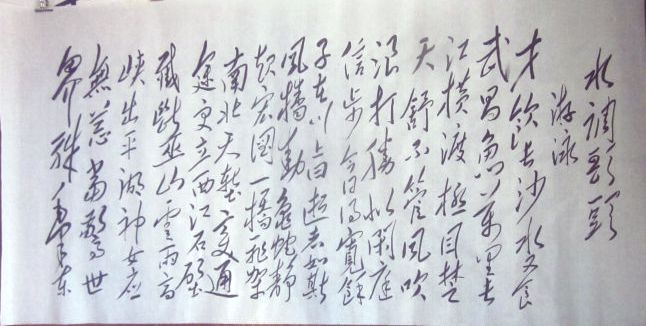 水調歌頭
游泳
才飲长沙水又食
武昌魚萬里长
江橫渡極目楚
天舒不管風吹
浪打勝似閑庭
信步今日得寬餘
子在川上曰逝者如斯
風檣動龜蛇静
起宏圖一橋飛架
南北天塹变通
途更立西江石壁
截斷巫山雲雨高
峡出平湖神女应
無恙當驚世
界殊毛泽东